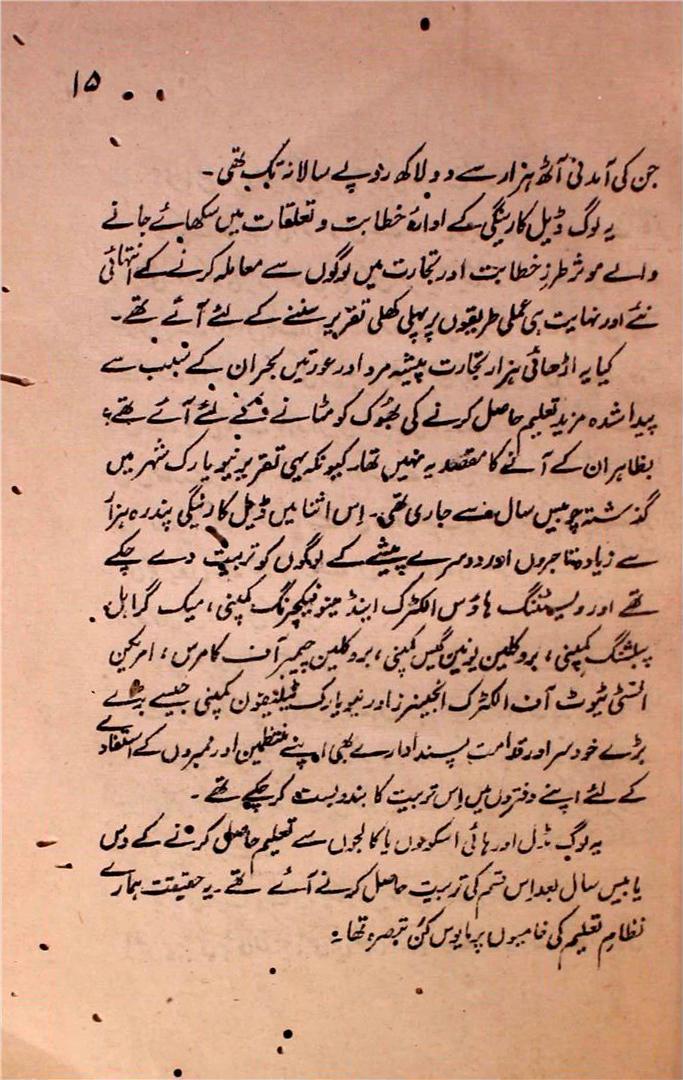 ۱۵
جن کی آمدنی آٹھ ہزار سے دو لاکھ روپے سالانہ تک تھی۔
یہ لوگ ڈیل کارنیگی کے ادارۂ خطابت و تعلقات میں سکھائے جانے
والے موثر طرزِ خطابت اور تجارت میں لوگوں سے معاملہ کرنے کے انتہائی
نئے اور نہایت ہی عملی طریقوں پر پہلی کھلی تقریر سننے کے لئے آئے تھے۔
کیا یہ اڑھائی ہزار تجارت پیشہ مرد اور عورتیں بحران کے سبب سے
پیدا شدہ مزید تعلیم حاصل کرنے کی بھوک کو مٹانے کے لئے آئے تھے؟
بظاہر ان کے آنے کا مقصد یہ نہیں تھا۔ کیونکہ یہی تقریر نیویارک شہر میں
گذشتہ چوبیس سال سے جاری تھی۔ اِس اثنا میں ڈیل کارنیگی پندرہ ہزار
سے زیادہ تاجروں اور دوسرے پیشے کے لوگوں کو تربیت دے چکے
تھے اور ویسٹنگ ہاؤس الکٹرک اینڈ مینوفیکچرنگ کمپنی، میک گرا ہل
پبلشنگ کمپنی، بروکلین یونین گیس کمپنی، بروکلین چیمبر آف کامرس، امریکن
انسٹی ٹیوٹ آف الکٹرک انجینرز اور نیویارک ٹیلیفون کمپنی جیسے بڑے
بڑے خودسر اور قدامت پسند ادارے بھی اپنے منتظمین اور ممبروں کے استفادے
کے لئے اپنے دفتروں میں اِس تربیت کا بندوبست کر چکے تھے۔
یہ لوگ مڈل اور ہائی اسکولوں یا کالجوں سے تعلیم حاصل کرنے کے دس
یا بیس سال بعد اِس قسم کی تربیت حاصل کرنے آئے تھے۔ یہ حقیقت ہمارے
نظامِ تعلیم کی خامیوں پر مایوس کن تبصرہ تھا۔